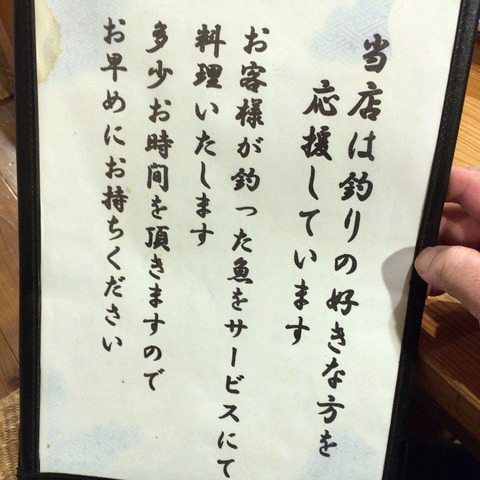 当店は釣りの好きな方を
応援しています
お客様が釣った魚をサービスにて
料理いたします
多少お時間を頂きますので
お早めにお持ちください